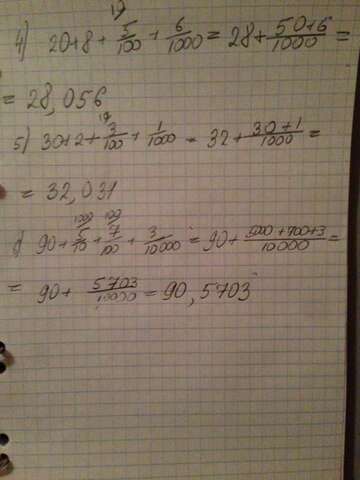 4) 20+8+5/100+6/1000=28+50+6/1000=
=28,056
5) 30+2+3/100+1/1000=32+30+1/1000=
=32,031
6) 90+5/10+7/100+3/10000=90+5000+700+3/10000=
=90+5703/10000=90,5703